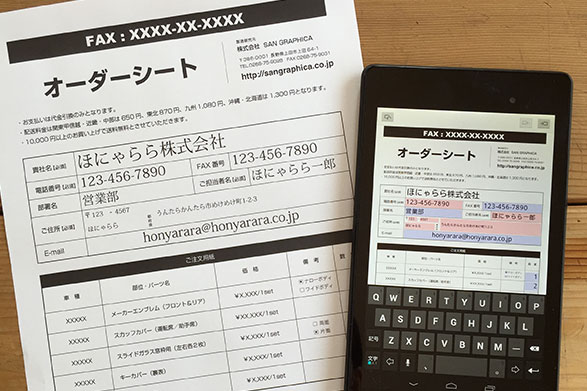 FAX：XXXX-XX-XXXX
オーダーシート
株式会社 SAN GRAPHICA
TEL:0268-75-9098 FAX:0268-75-9081
http://sangraphica.co.jp
・お支払いは代金引換のみとなります。
・配送料金は関東甲信越・近畿・中部は650円、東北870円、九州1,080円、沖縄・北海道は1,300円となります。
・10,000円以上のお買い上げで送料無料とさせていただきます。
貴社名［必須］ ほにゃらら株式会社
電話番号［必須］ 123-456-7890 FAX番号 123-456-7890
部署名 営業部 ご担当者名［必須］ ほにゃらら一郎
ご住所［必須］ 〒123 - 4567
ほにゃらら うんたらかんたら市めけめけ町1-2-3
E-mail honyarara@honyarara.co.jp
ご注文用紙
車種 部位・パーツ名 価格 備考 数
XXXXX メーカーエンブレム（フロント&リア） ¥X,XXX/1set ナローボディ
ワイドボディ
XXXXX スカッフカバー（運転席／助手席） ¥X,XXX/1set
XXXXX スライドガラス窓枠用（左右各2枚） ¥X,XXX/1set 両面
片面
XXXXX キーカバー（樹表） ¥X,XXX/1set
FAX：XXXX-XX-XXXX
オーダーシート
株式会社 SAN GRAPHICA
http://sangraphica.co.jp
ほにゃらら株式会社
123-456-7890 FAX番号 123-456-7890
営業部 ほにゃらら一郎
honyarara@honyarara.co.jp
ご注文用紙
1
2
Q W E R T Y U I O P
A S D F G H J K L
Z X C V B N M
文字